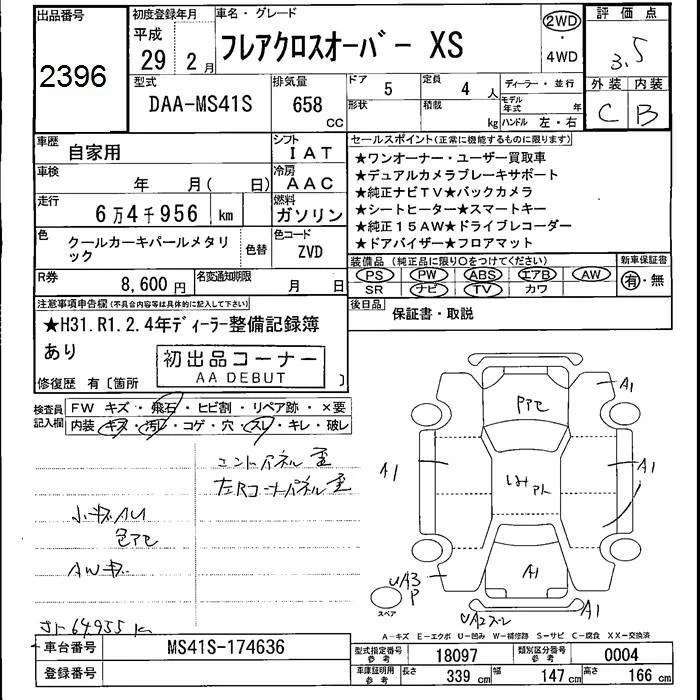 出品番号
2396
初度登録年月
平成
29 2月
車名・グレード
フレアクロスオーバー XS
2WD
・
4WD
評価点
3.5
外装 内装
C B
型式
DAA-MS41S
排気量
658
CC
ドア 5
定員 4 人
ディーラー・並行
形状
積載 kg
モデル年式 年
ハンドル 左・右
車歴
自家用
シフト
IAT
車検
年 月( 日)
冷房
AAC
走行
6万4千956 km
燃料
ガソリン
色
クールカーキパールメタリック
色替
色コード
ZVD
R券
8,600円
名変通知期限
月 日
セールスポイント(正常に機能するものに限ります)
★ワンオーナー・ユーザー買取車
★デュアルカメラブレーキサポート
★純正ナビTV★バックカメラ
★シートヒーター★スマートキー
★純正15AW★ドライブレコーダー
★ドアバイザー★フロアマット
装備品 (純正品に限り○をつけてください)
PS PW ABS エアB AW
SR ナビ TV カワ
新車保証書
有・無
後日品
保証書・取説
注意事項申告欄(不具合内容等は具体的に記入して下さい)
★H31.R1.2.4年ディーラー整備記録簿
あり
初出品コーナー
AA DEBUT
修復歴 有〔箇所 〕
検査員記入欄
FW キズ・飛石・ヒビ割・リペア跡・×要
内装・キズ・汚レ・コゲ・穴・スレ・キレ・破レ
エントパネル歪
左Rコーナーパネル歪
小キズAU
色アセ
AWキズ
メーター64955 km
A1
Pアセ
A1
A1
A1
UA3
P
スペア
UA2スレ
A1
A-キズ E-エクボ U-凹み W-補修跡 S-サビ C-腐食 XX-交換済
車台番号
MS41S-174636
登録番号
型式指定番号
参考
18097
類別区分番号
参考
0004
車庫証明用
参考
長さ 339 cm
幅 147 cm
高さ 166 cm